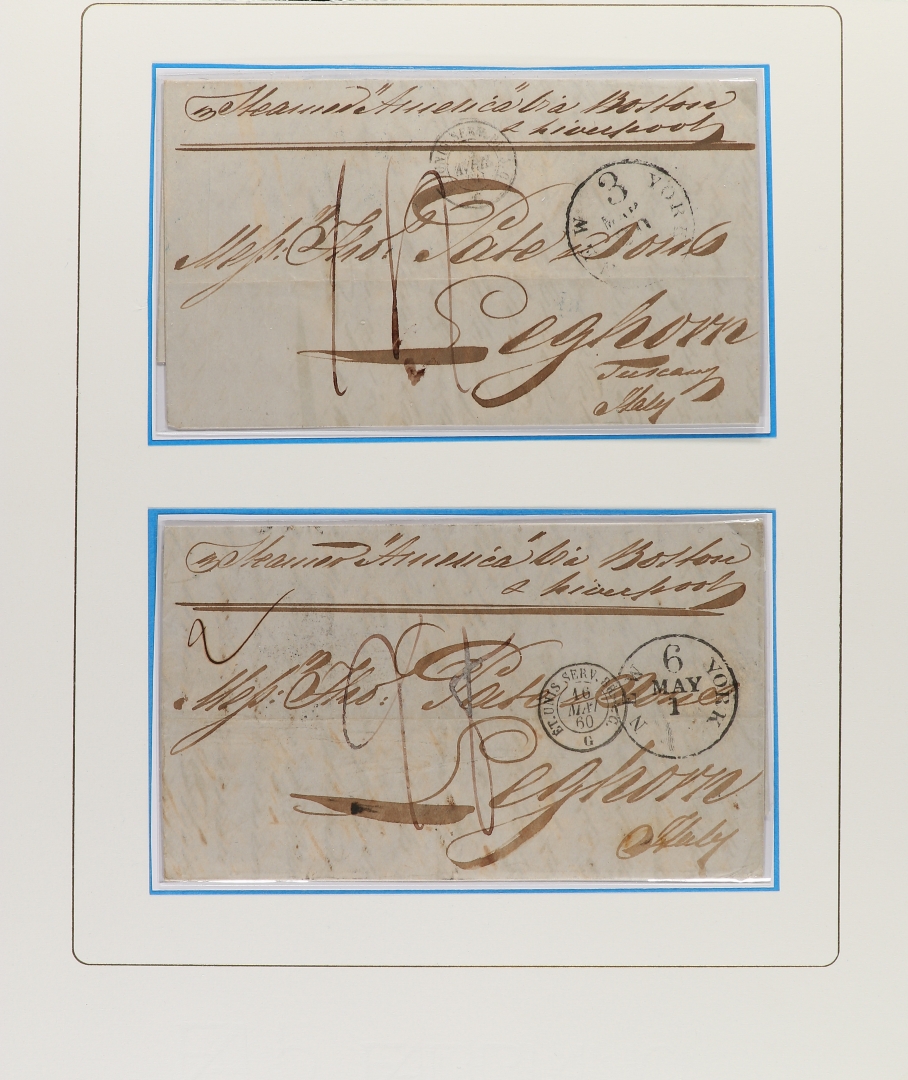 Steamer "America" Via Boston
& Liverpool
NEW YORK
3
MAR
Messrs. Tho. Pate & Sons
Leghorn
Tuscany
Italy
Steamer "America" Via Boston
& Liverpool
2
ET. UNIS SERV.
16
MAI
60
G
NEW YORK
6
MAY
1
Messrs. Tho. Pate & Sons
Leghorn
Italy